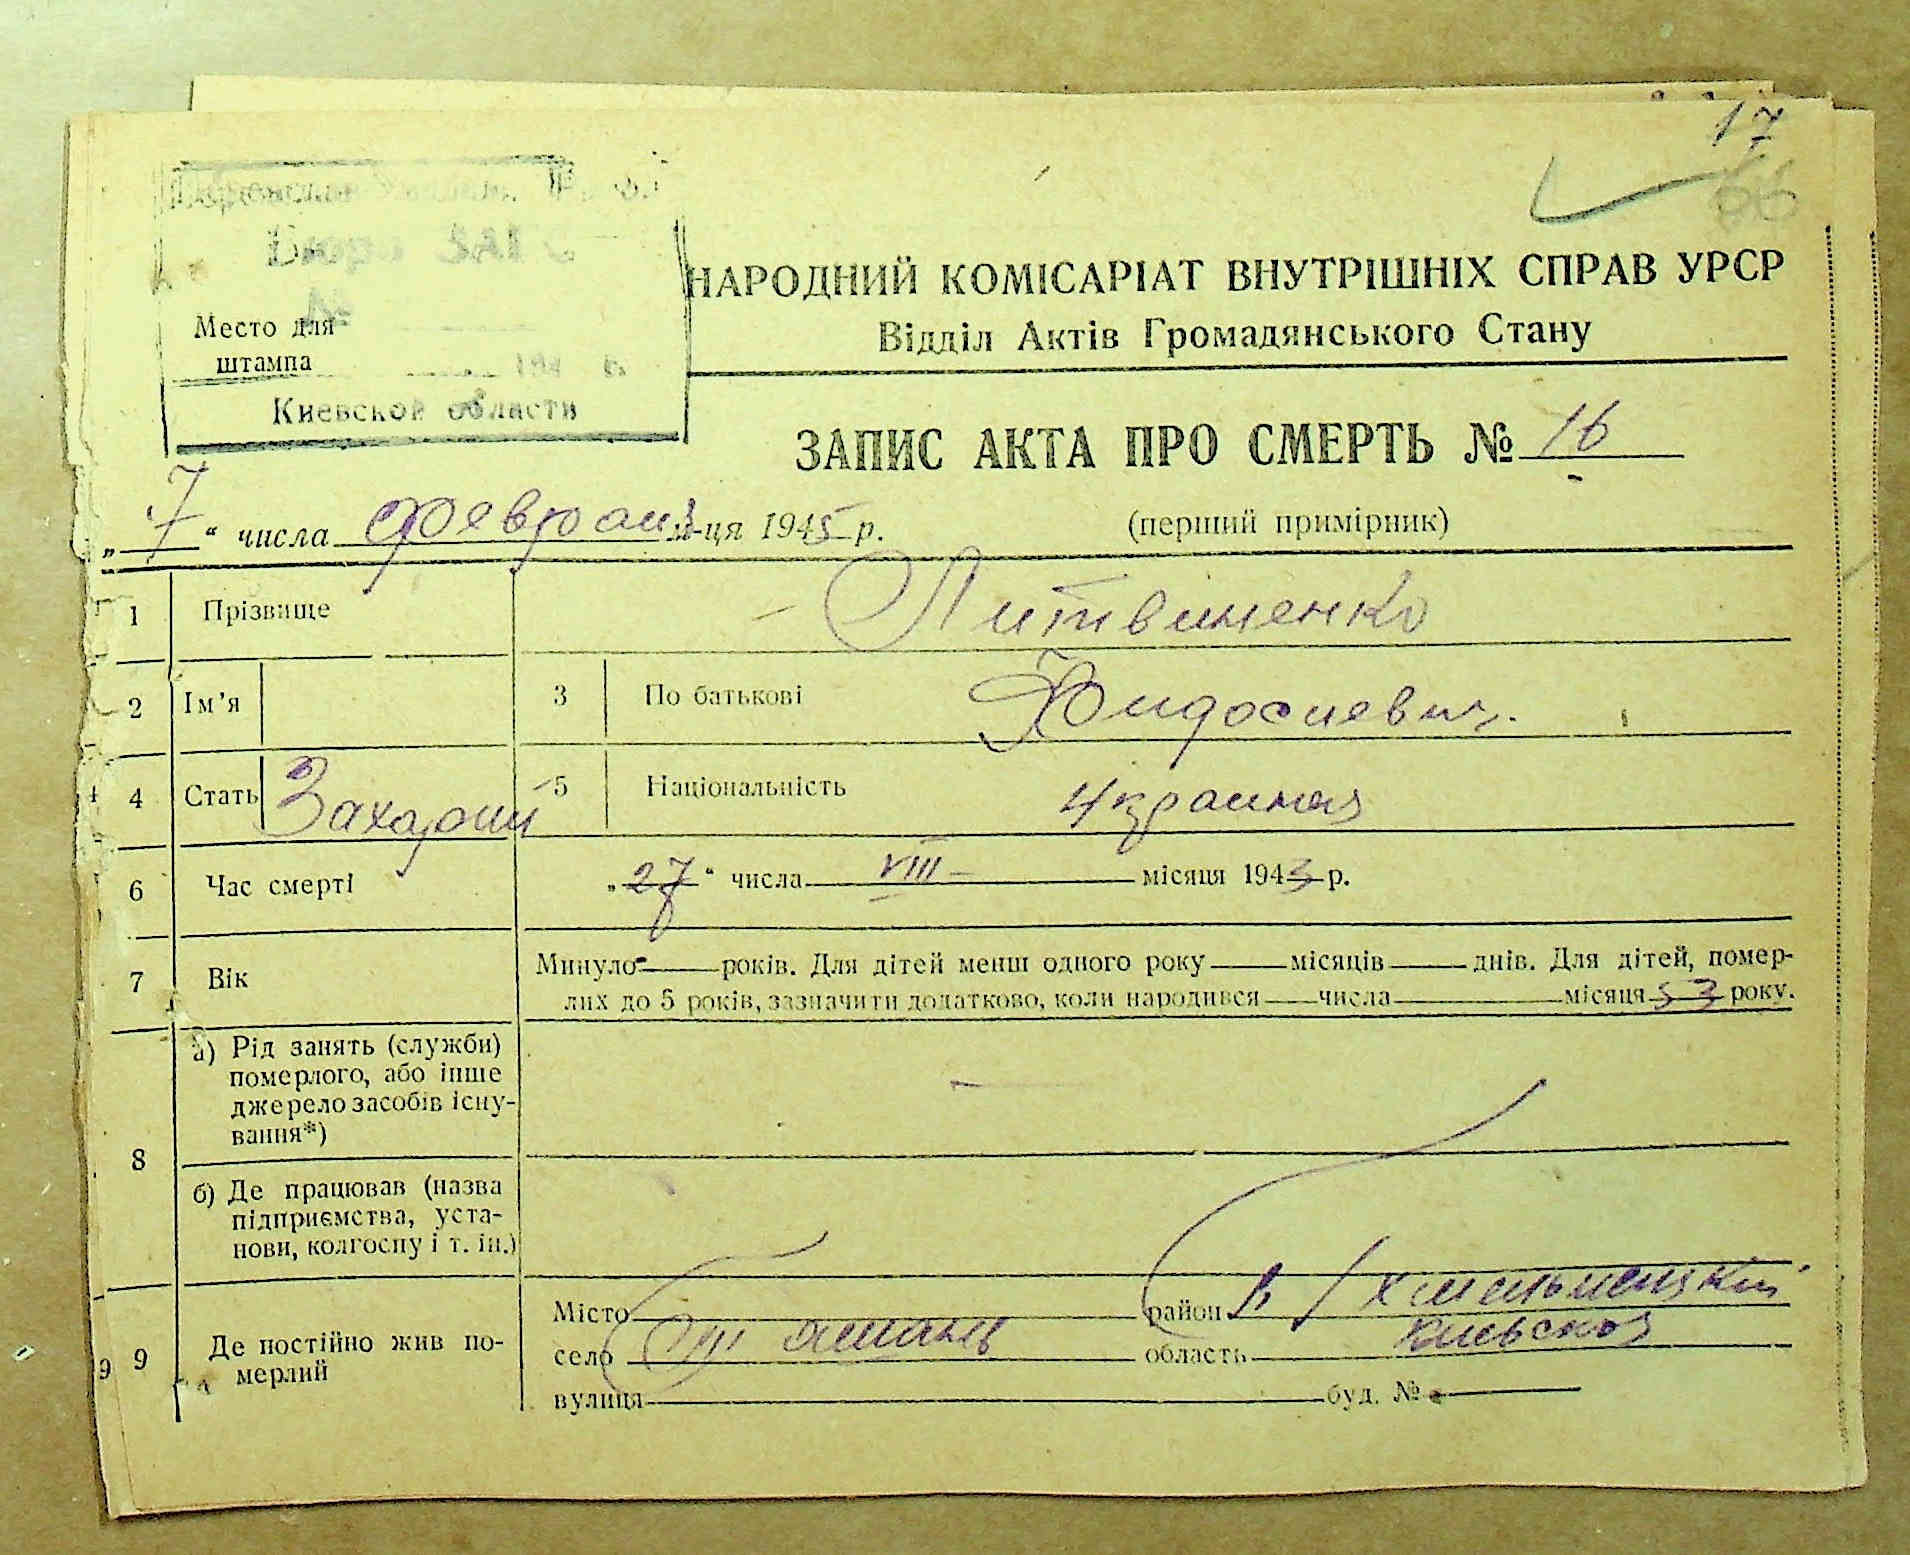 17
66
Бюро ЗАГС
№
194 г.
Место для
штампа
Киевской области
НАРОДНИЙ КОМІСАРІАТ ВНУТРІШНІХ СПРАВ УРСР
Відділ Актів Громадянського Стану
ЗАПИС АКТА ПРО СМЕРТЬ № 16
„7“ числа февраля м-ця 1945 р.
(перший примірник)
1 Прізвище Литвиненко
2 Ім'я 3 По батькові Фидосиевич.
4 Стать Захарий 5 Національність украиная
6 Час смерті „27“ числа VIII месяця 1943 р.
7 Вік Минуло — років. Для дітей менш одного року — місяців — днів. Для дітей, помер-
лих до 5 років, зазначити додатково, коли народився — числа — місяця 53 року.
8 а) Рід занять (служби)
померлого, або інше
джерело засобів існу-
вання*)
б) Де працював (назва
підприємства, уста-
нови, колгоспу і т. ін.)
9 9 Де постійно жив по-
мерлий
Місто район Хмельнецкий
село область Киевская
вулиця буд. №